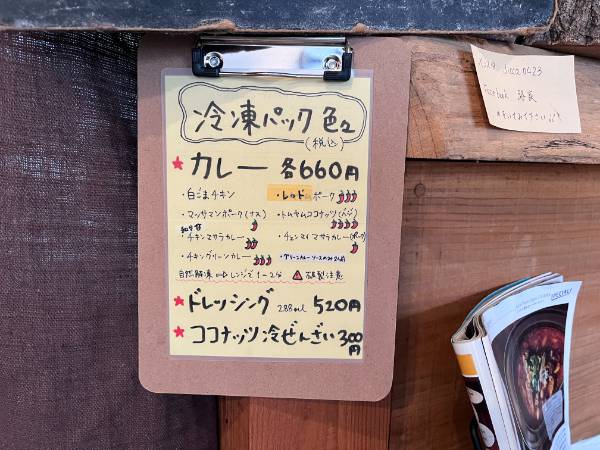 冷凍パック色々
(税込)
★カレー 各660円
・白ごまチキン
・レッドポーク
・マッサマンポーク(ナス)
・トムヤムココナッツ(エビ)
・チキンマサラカレー
・チェンマイマサラカレー(ポーク)
・チキングリーンカレー
・グリーンカレーソースのみ2人前
自然解凍⇨レンジで1~2分 ⚠破裂注意
★ドレッシング 288ml 520円
★ココナッツ冷ぜんざい 300円
Facebook